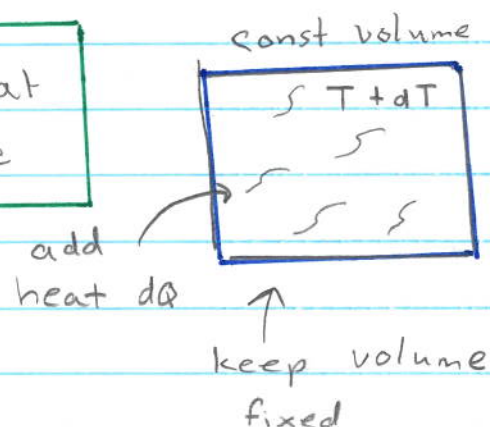 const volume
at
T + dT
e
add
heat dQ
keep volume
fixed